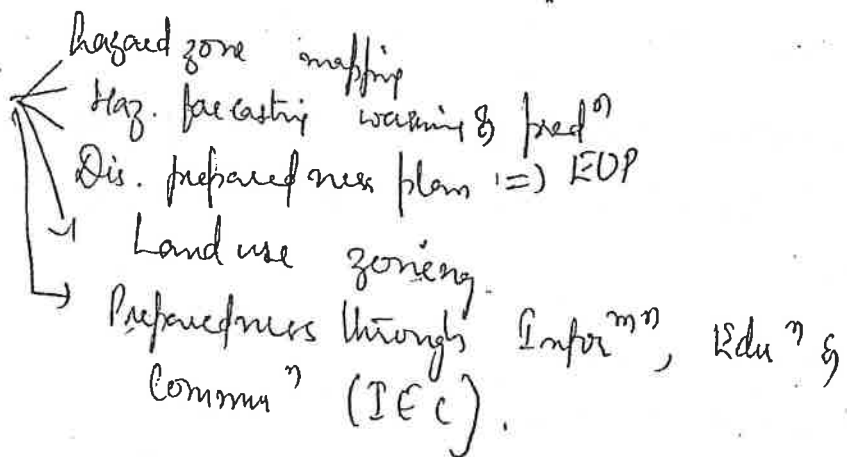 hazard zone mapping
Haz. forecasting warning & predⁿ
Dis. preparedness plan => EOP
Land use zoneing.
Preparedness through Inforᵐⁿ, Eduⁿ &
Communⁿ (IEC).